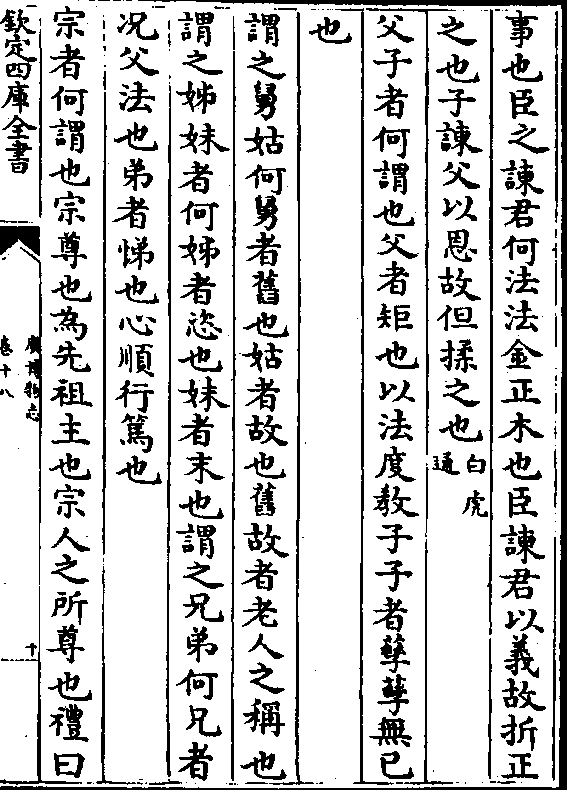 事也臣之諫君何法法金正木也臣諫君以義故折正
之也子諫父以恩故但揉之也白虎通
父子者何謂也父者矩也以法度教子子者孳孳無已
也
謂之舅姑何舅者舊也姑者故也舊故者老人之稱也
謂之姊妹者何姊者恣也妹者末也謂之兄弟何兄者
况父法也弟者悌也心順行篤也
宗者何謂也宗尊也為先祖主也宗人之所尊也禮曰
欽定四庫全書
廣博物志
卷十八
十